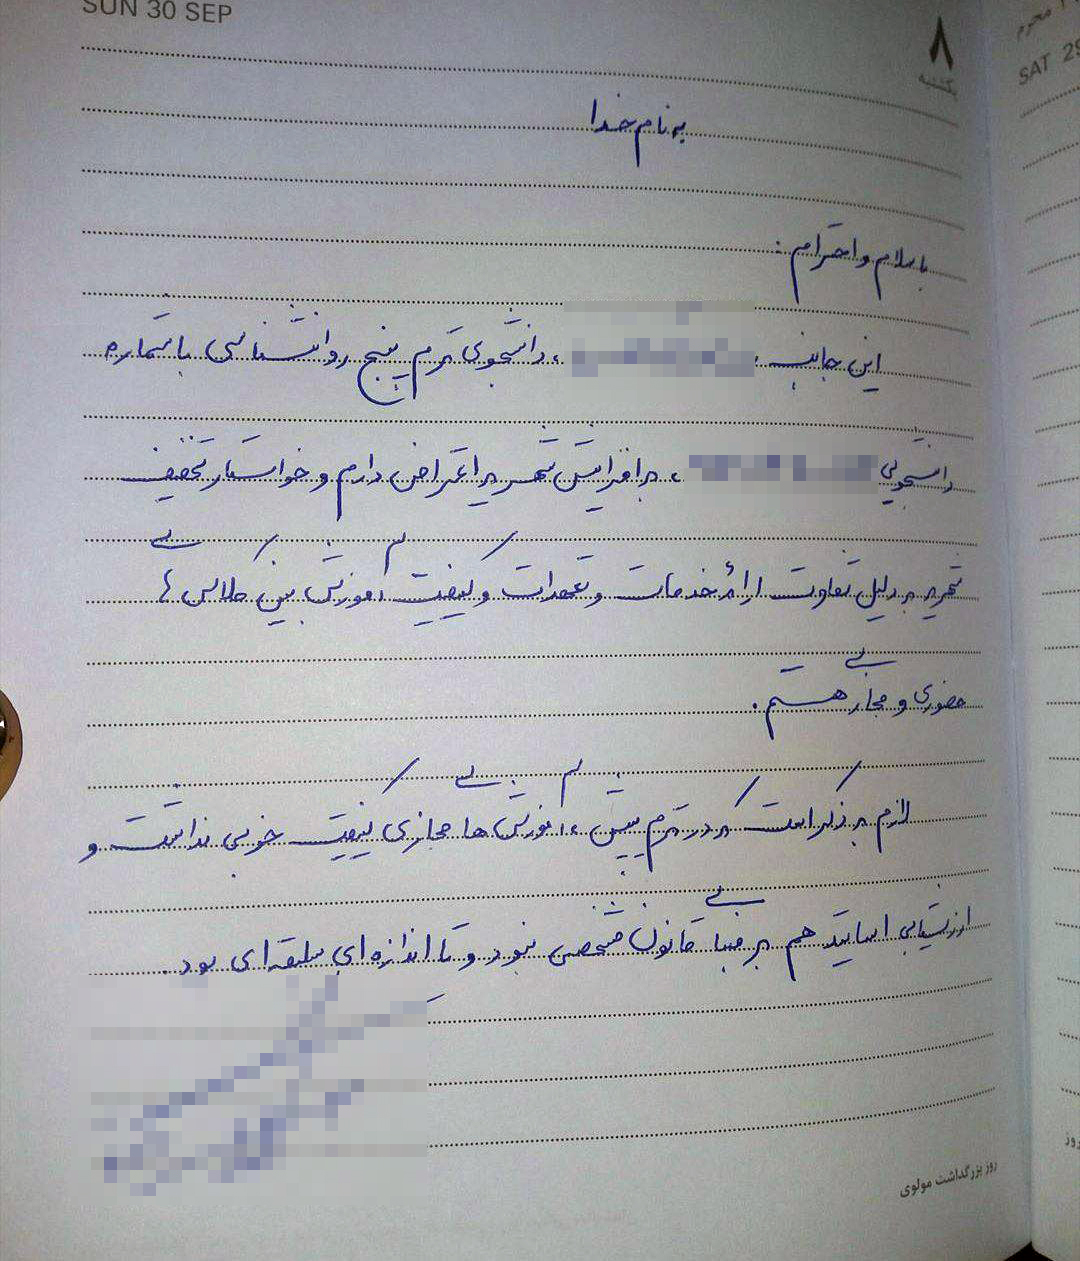 SUN 30 SEP
۸
یکشنبه
محرم
SAT 29
به نام خدا
با سلام و احترام :
این جانب ، دانشجوی ترم پنج روانشناسی با شماره
دانشجویی ، به افزایش شهریه اعتراض دارم و خواستار تخفیف
شهریه به دلیل تفاوت ارائه خدمات و تعهدات و کیفیت آموزش بین کلاس های
حضوری و مجازی هستم .
لازم به ذکر است که در ترم پیش ، آموزش های مجازی کیفیت خوبی نداشت و
ارزشیابی اساتید هم بر مبنای قانون مشخصی نبود و تا اندازه ای سلیقه ای بود .
روز بزرگداشت مولوی
روز